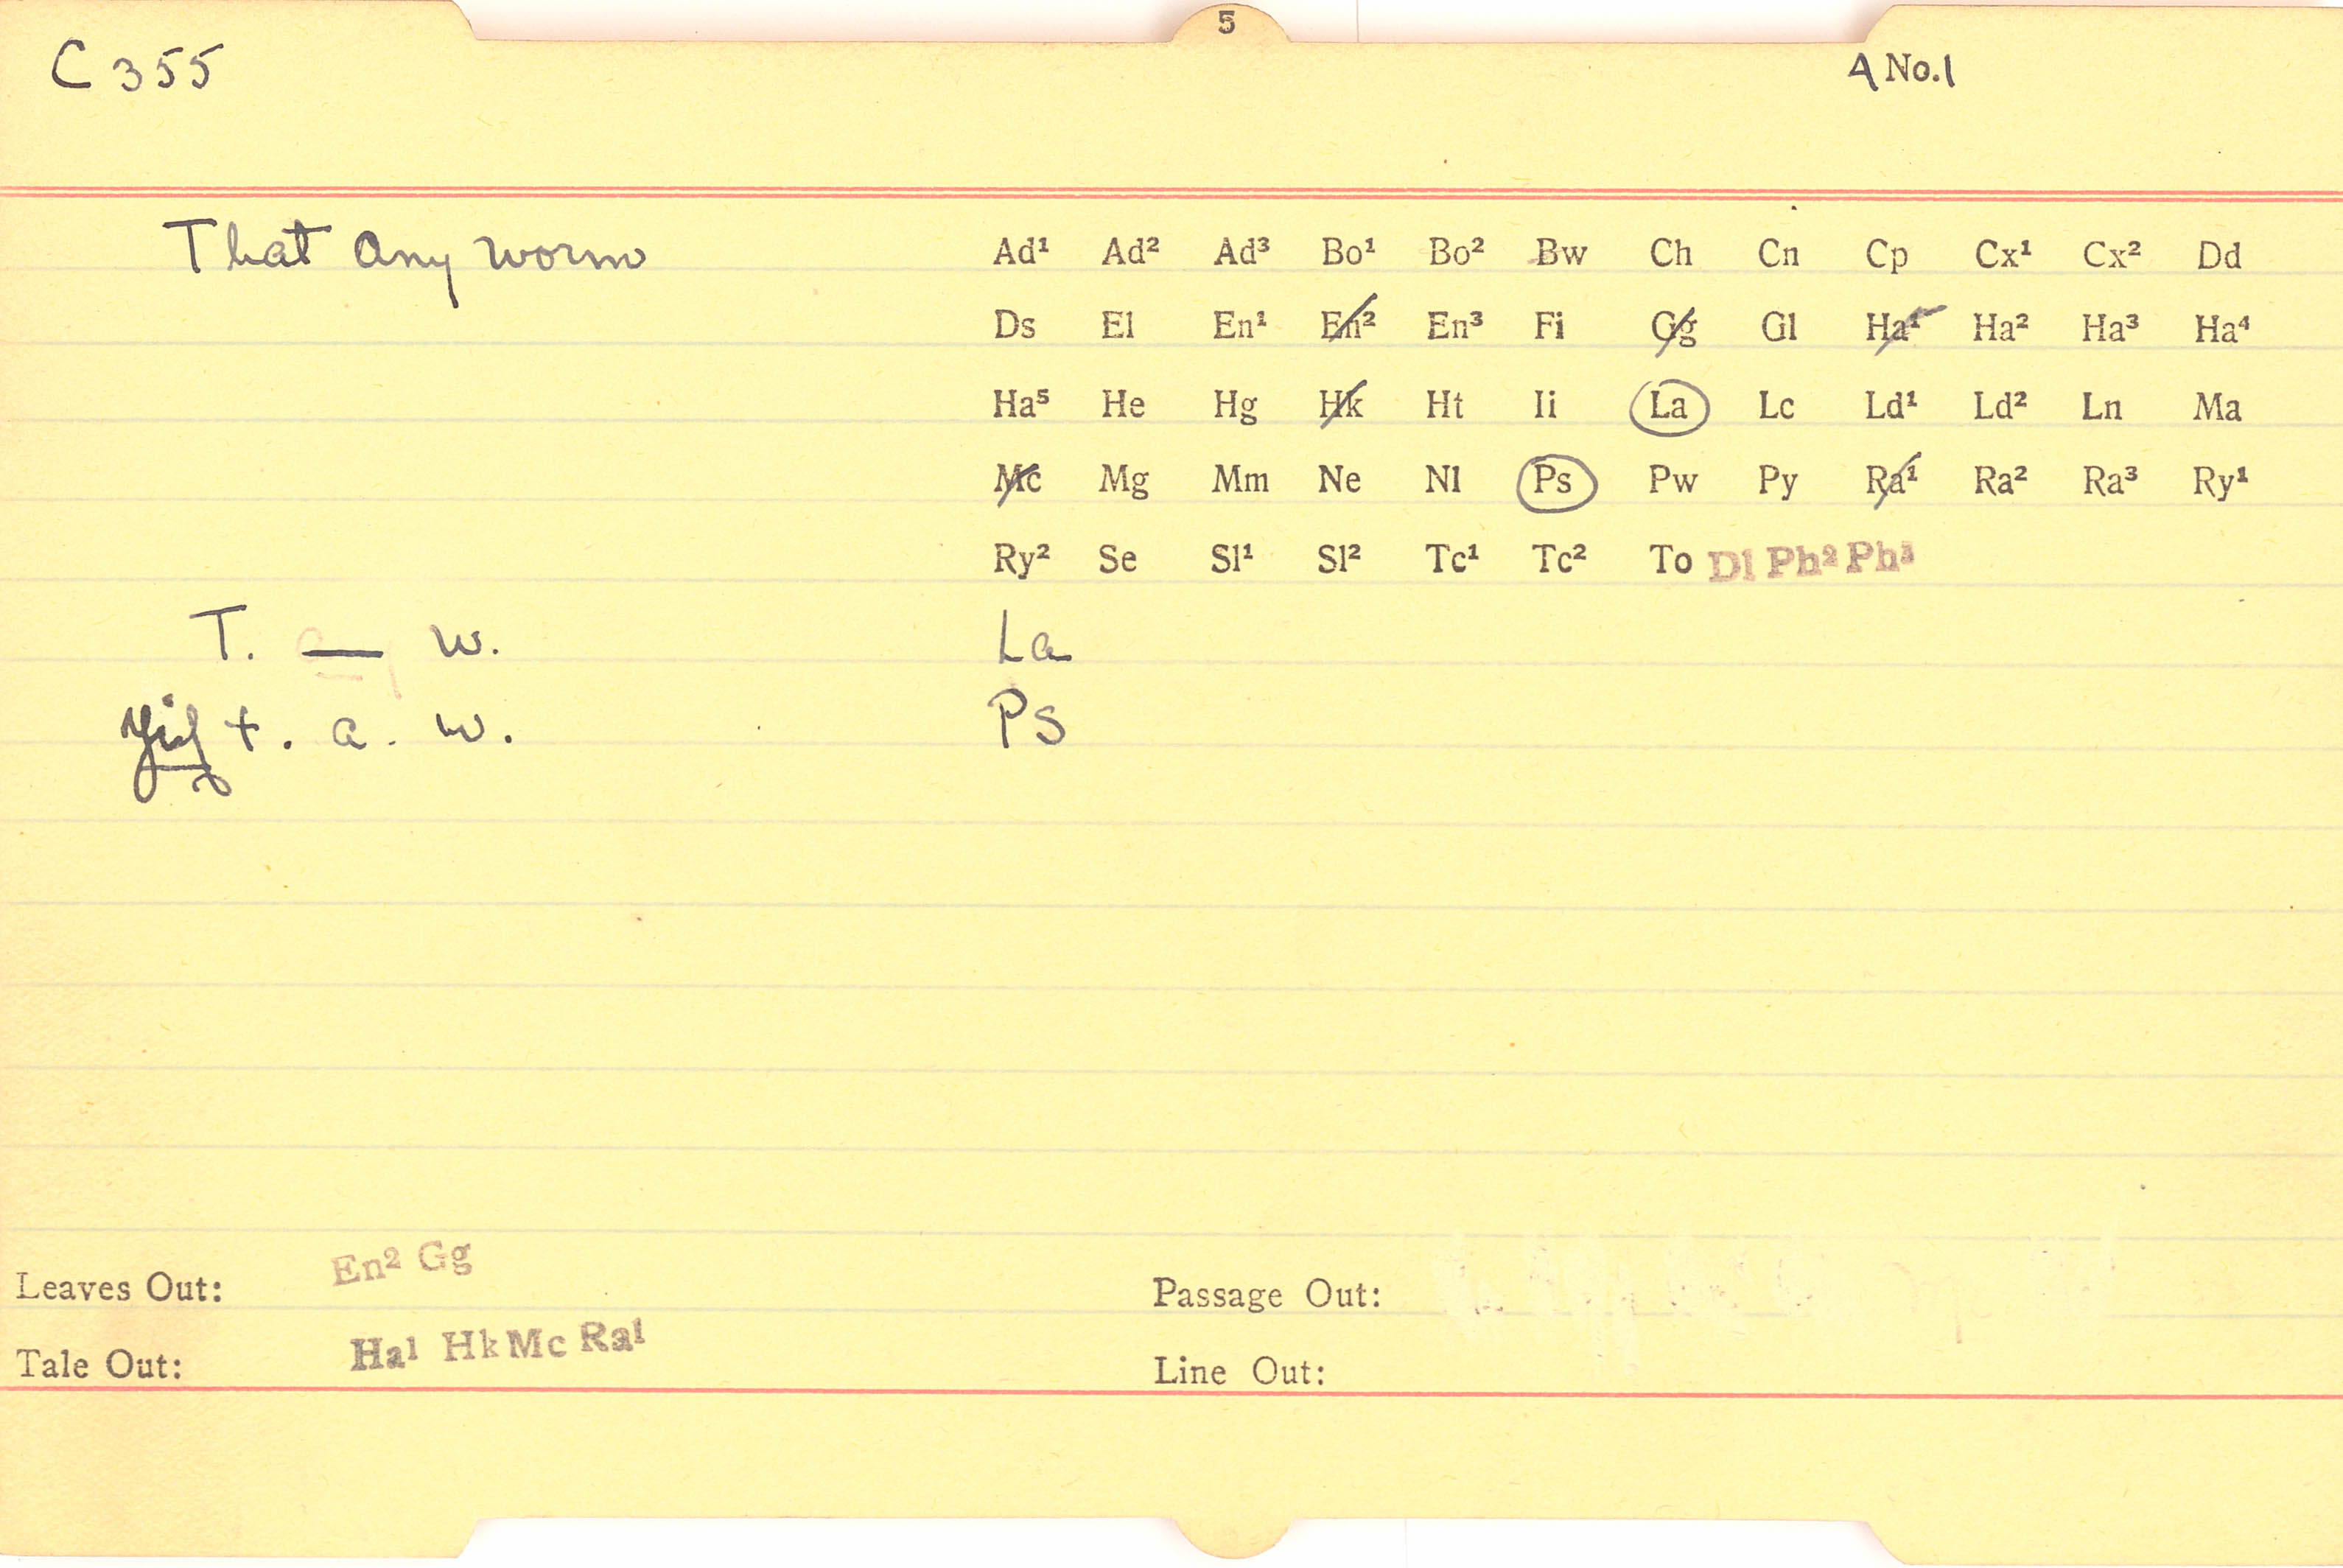 5
C 355
A No. 1
That any worm
Ad¹ Ad² Ad³ Bo¹ Bo² Bw Ch Cn Cp Cx¹ Cx² Dd
Ds El En¹ En² En³ Fi Gg Gl Ha¹ Ha² Ha³ Ha⁴
Ha⁵ He Hg Hk Ht Ii La Lc Ld¹ Ld² Ln Ma
Mc Mg Mm Ne Nl Ps Pw Py Ra¹ Ra² Ra³ Ry¹
Ry² Se Sl¹ Sl² Tc¹ Tc² To Dl Ph² Ph³
T. — w. La
t. a. w. Ps
Leaves Out: En² Gg
Passage Out:
Tale Out: Ha¹ Hk Mc Ra¹
Line Out: